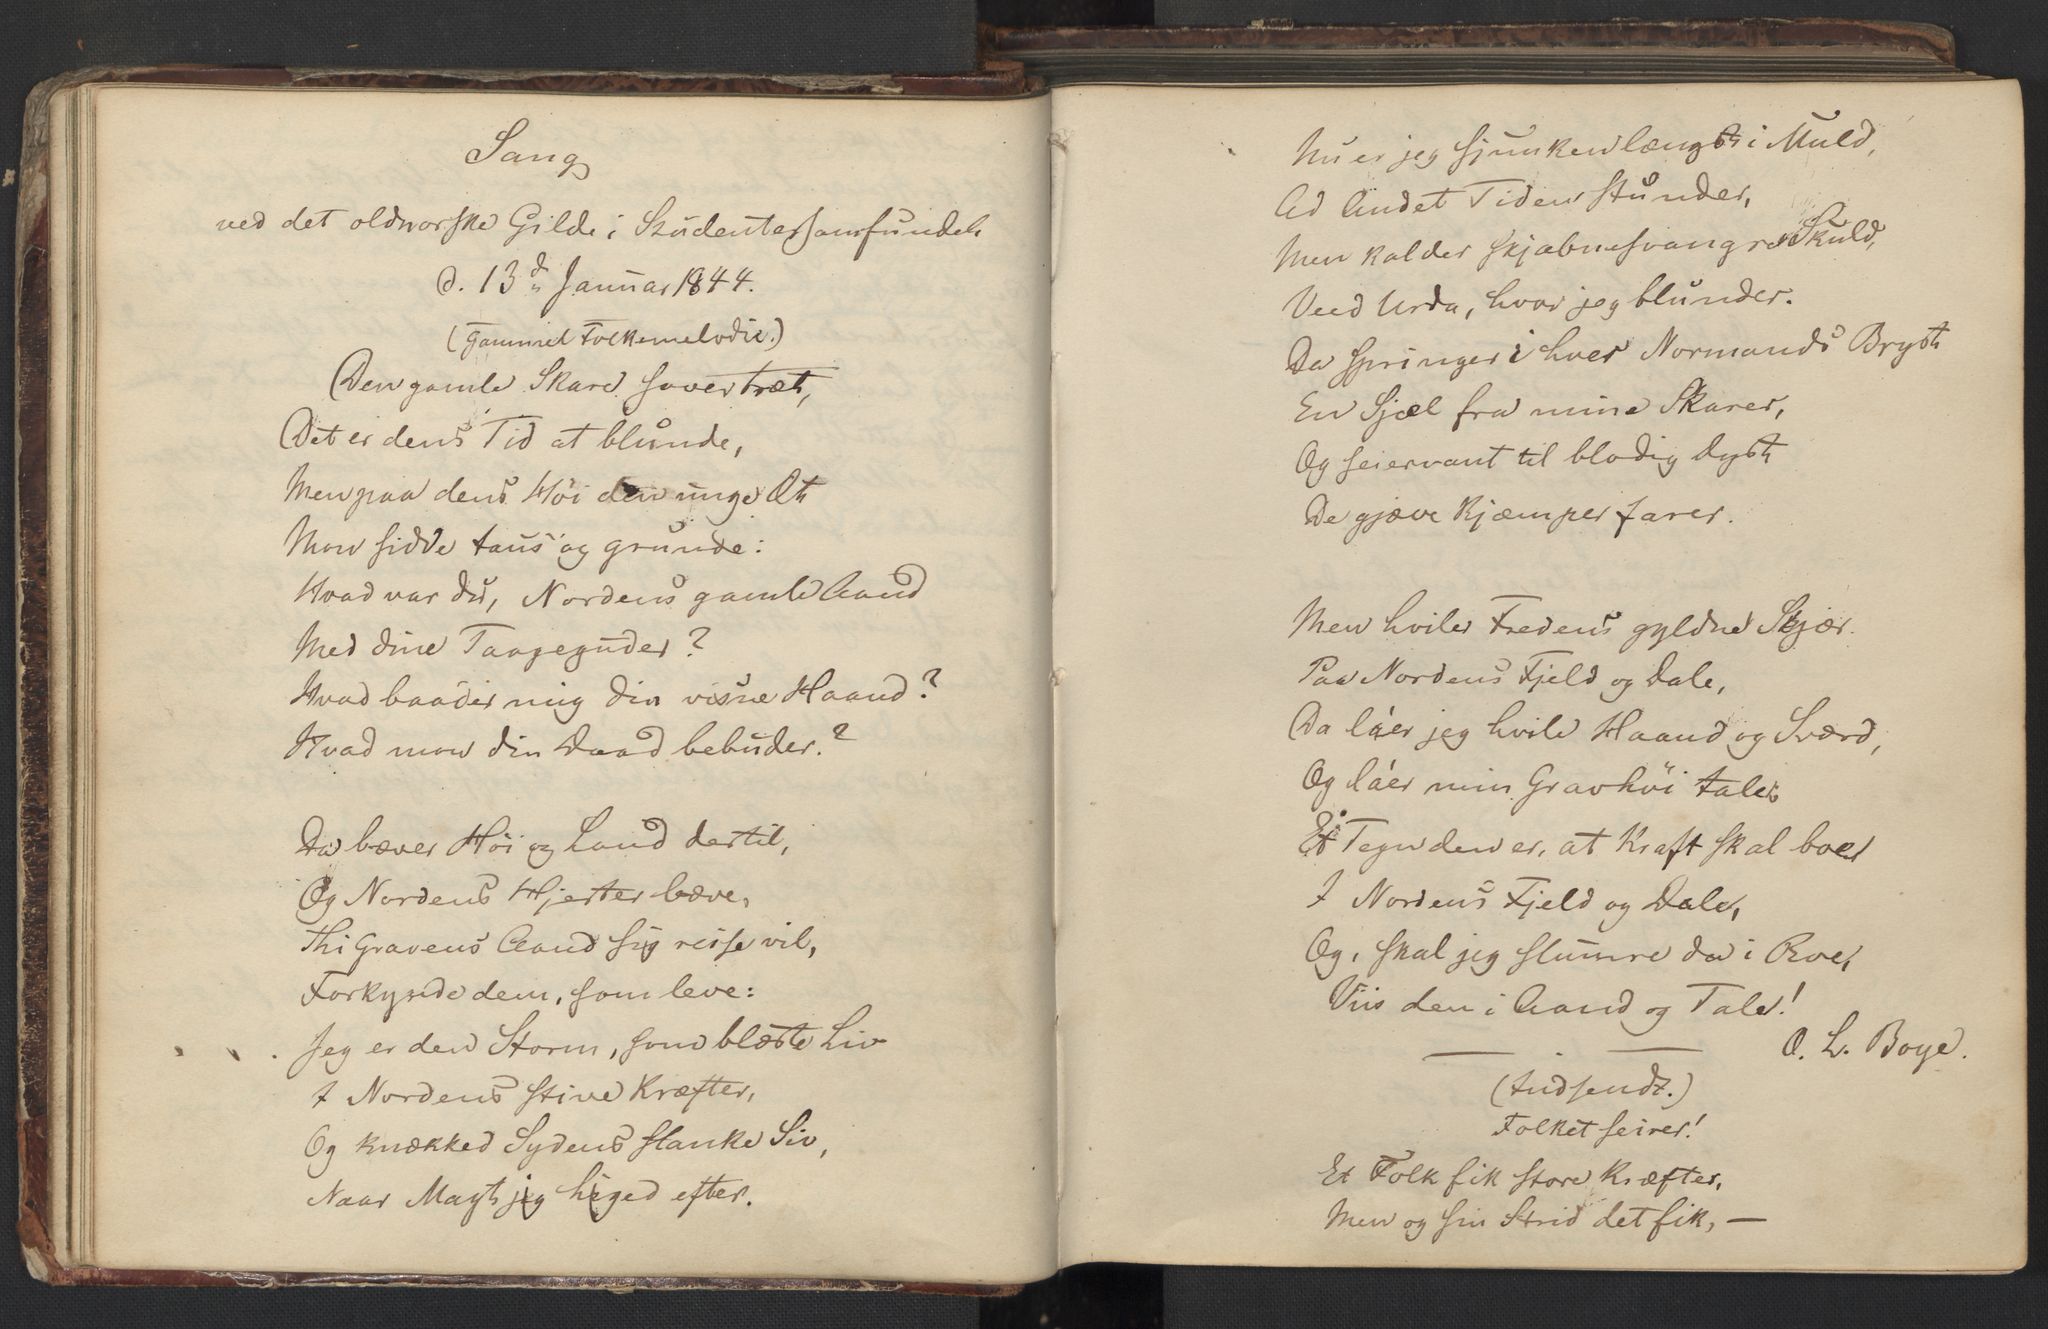 Sang
ved det oldnorske Gilde i Studentersamfundet
d. 13d Januar 1844.
(Gammel Folkemelodie.)
Den gamle Skare sover træt,
Det er dens Tid at blunde,
Men paa dens Höi den unge Æt
Mon sidde taus og grunde:
Hvad var du, Nordens gamle Aand
Med dine Taageguder?
Hvad baader mig din visne Haand?
Hvad mon din Daad bebuder?
Da bæver Höi og Land dertil,
Og Nordens Hjerter bæve,
Thi Gravens Aand sig reise vil,
Forkynde dem, som leve:
Jeg er den Storm, som blæste Liv
I Nordens stive Kræfter,
Og knækked Sydens slanke Siv,
Naar Magt jeg higed efter.
Nu er jeg sjunken længst i Muld,
Ad Andet Tiden stunder,
Men kalder skjæbnesvangre Skuld,
Veed Urda, hvor jeg blunder.
Da springer i hver Normands Bryst
En Sjæl fra mine Skarer,
Og seiervant til blodig Dyst
De gjæve Kjæmper farer.
Men hviler Fredens gyldne Skjær
Paa Nordens Fjeld og Dale,
Da láer jeg hvile Haand og Sværd,
Og láer min Gravhöi tale
Et Tegn den er, at Kraft skal boe
I Nordens Fjeld og Dale,
Og, skal jeg slumre da i Roe,
Viis den i Aand og Tale!
O. L. Boye.
(Indsendt.)
Folket seirer!
Et Folk fik store Kræfter,
Men og sin Strid det fik, —